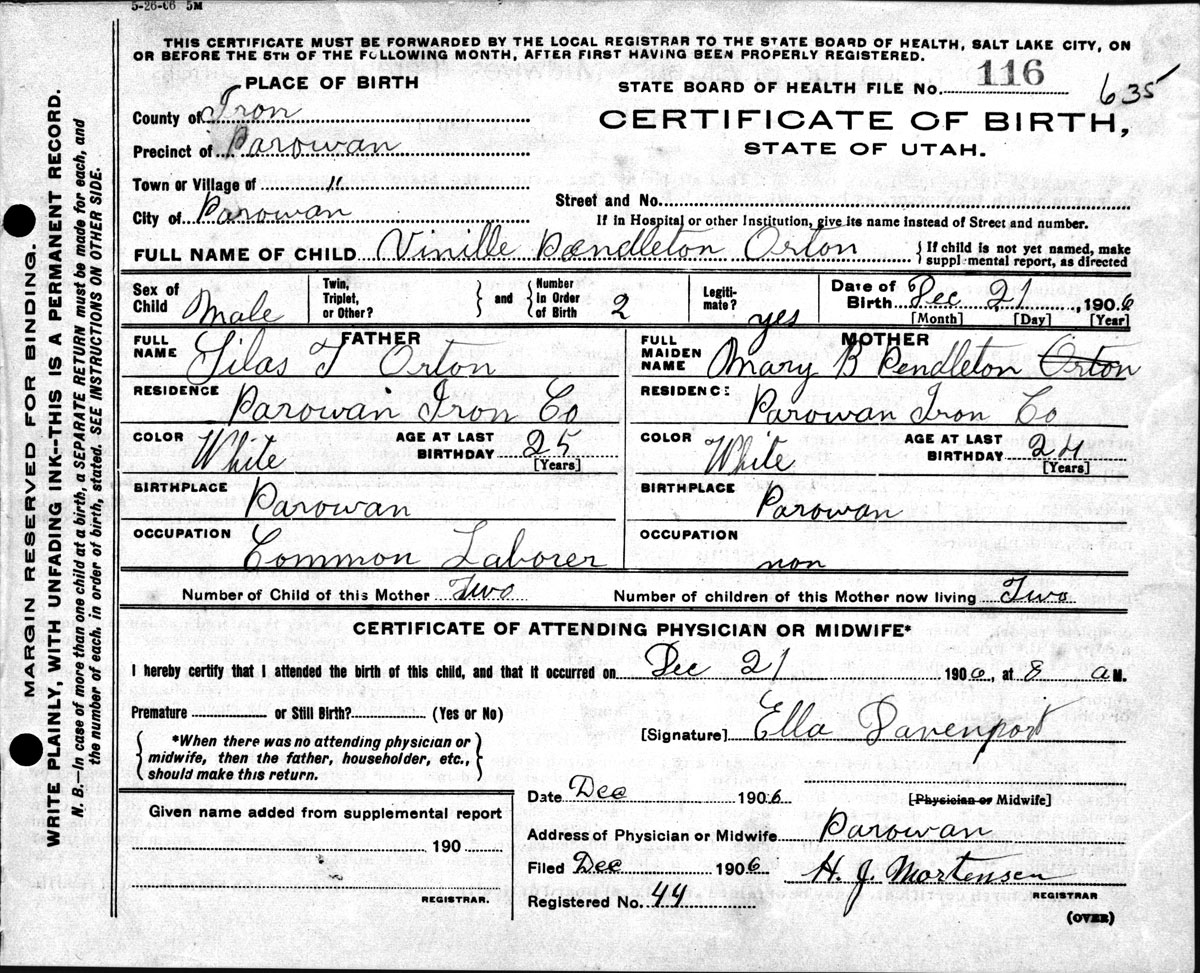 5-26-06 5M
THIS CERTIFICATE MUST BE FORWARDED BY THE LOCAL REGISTRAR TO THE STATE BOARD OF HEALTH, SALT LAKE CITY, ON
OR BEFORE THE 5TH OF THE FOLLOWING MONTH, AFTER FIRST HAVING BEEN PROPERLY REGISTERED.
PLACE OF BIRTH
STATE BOARD OF HEALTH FILE No. 116 635
County of Iron
CERTIFICATE OF BIRTH,
STATE OF UTAH.
Precinct of Parowan
Town or Village of "
Street and No.
City of Parowan
If in Hospital or other Institution, give its name instead of Street and number.
FULL NAME OF CHILD Vinille Pendleton Orton { If child is not yet named, make supplemental report, as directed
Sex of Child Male
Twin, Triplet, or Other? } and { Number in Order of Birth 2
Legitimate? yes
Date of Birth Dec 21, 1906
[Month] [Day] [Year]
FATHER
FULL NAME Silas T Orton
MOTHER
FULL MAIDEN NAME Mary B Pendleton Orton
RESIDENCE Parowan Iron Co
RESIDENCE Parowan Iron Co
COLOR White AGE AT LAST BIRTHDAY 25 [Years]
COLOR White AGE AT LAST BIRTHDAY 24 [Years]
BIRTHPLACE Parowan
BIRTHPLACE Parowan
OCCUPATION Common Laborer
OCCUPATION non
Number of Child of this Mother Two Number of children of this Mother now living Two
CERTIFICATE OF ATTENDING PHYSICIAN OR MIDWIFE*
I hereby certify that I attended the birth of this child, and that it occurred on Dec 21 1906, at 8 a M.
Premature or Still Birth? (Yes or No)
[Signature] Ella Davenport
{ *When there was no attending physician or
midwife, then the father, householder, etc.,
should make this return. }
Date Dec 1906 [Physician or Midwife]
Given name added from supplemental report
190
REGISTRAR.
Address of Physician or Midwife Parowan
Filed Dec 1906 H. J. Mortensen
REGISTRAR
Registered No. 44
(OVER)
MARGIN RESERVED FOR BINDING.
WRITE PLAINLY, WITH UNFADING INK—THIS IS A PERMANENT RECORD.
N. B.—In case of more than one child at a birth, a SEPARATE RETURN must be made for each, and
the number of each, in order of birth, stated. SEE INSTRUCTIONS ON OTHER SIDE.